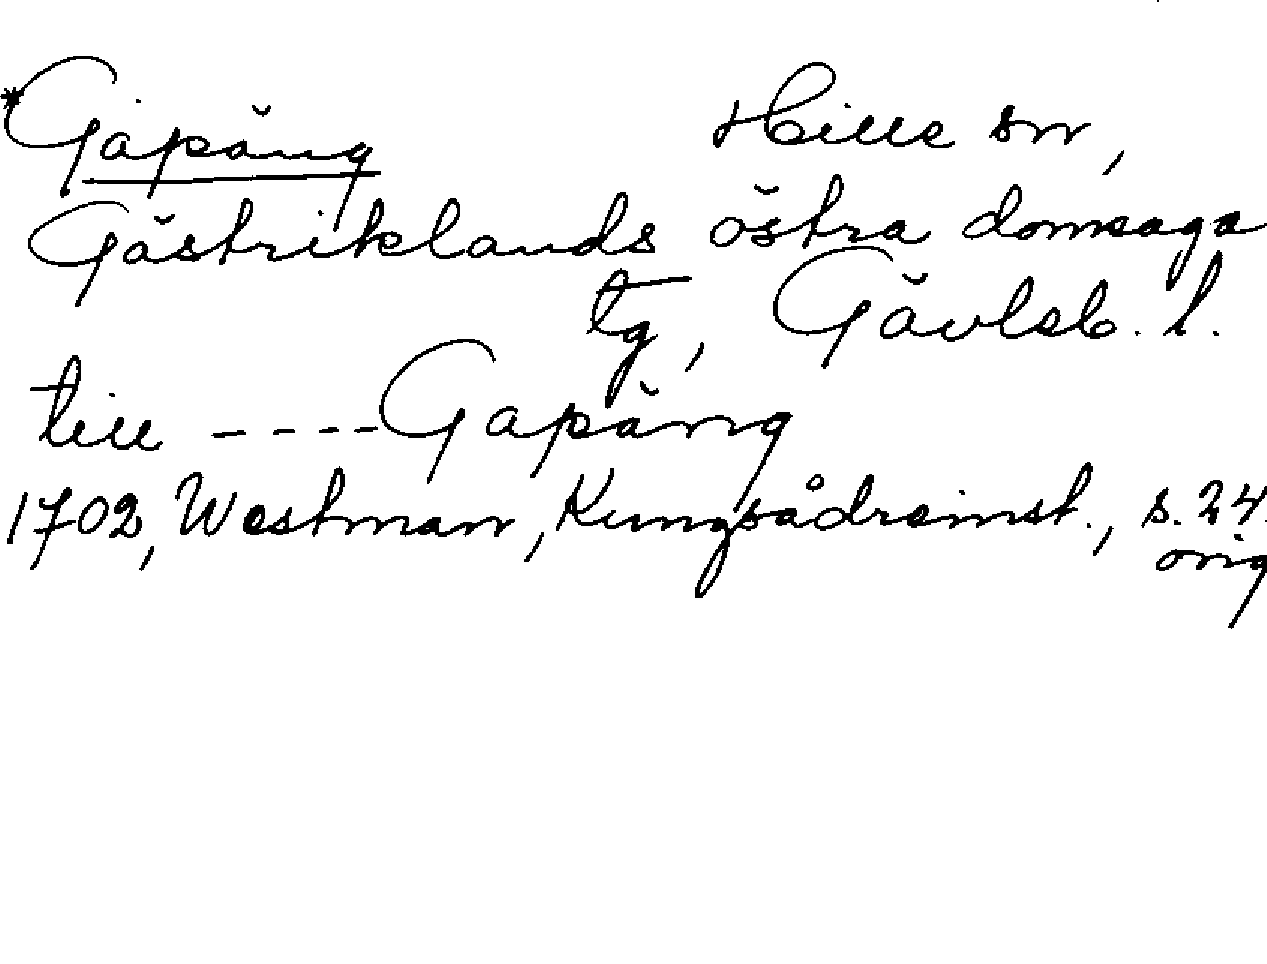 *Gapäng Hille sn,
Gästriklands östra domsaga
tg, Gävleb. l.
till ----Gapäng
1702, Westman, Kungsådreinst., s. 24.
orig